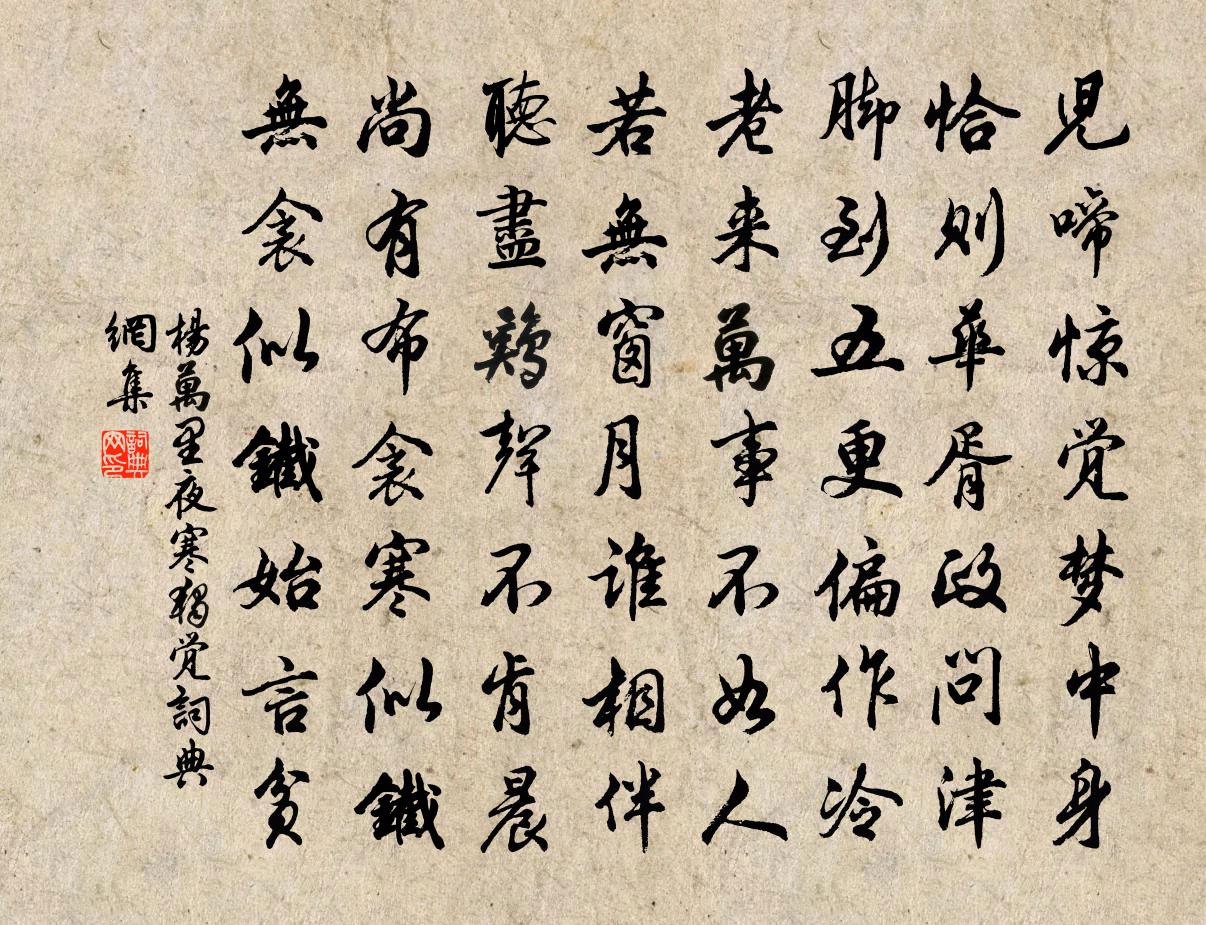 児啼惊覚梦中身
恰則華胥政問津
脚到五更偏作冷
老来萬事不如人
若無窗月誰相伴
聽盡鷄聲不肯晨
尚有布衾寒似鐵
無衾似鐵始言貧
楊萬里夜寒獨覚詞典
網集
詞典
网印